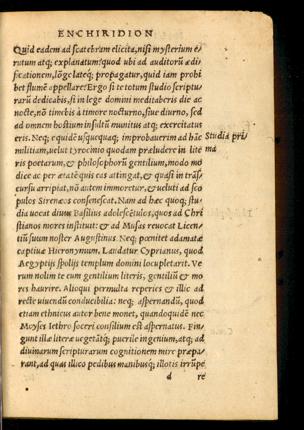 ENCHIRIDION
Quid eadem ad scatebram elicita, nisi mysterium e/
rutum atq; explanatum? quod ubi ad auditorũ ædi/
ficationem, lõge lateq; propagatur, quid iam prohi
bet flumẽ appellare? Ergo si te totum studio scriptu/
rarũ dedicabis, si in lege domini meditaberis die ac
nocte, nõ timebis à timore nocturno, siue diurno, sed
ad omnem hostium insultũ munitus atq; exercitatus
eris. Neq; equidẽ usquequaq; improbauerim ad hãc
Studia pri/
ma
militiam, uelut tyrocinio quodam præludere in lite
ris poetarum, & philosophorũ gentilium, modo mo
dice ac per ætatẽ quis eas attingat, & quasi in trãs/
cursu arripiat, nõ autem immoretur, & ueluti ad sco
pulos Sireneos consenescat. Nam ad hæc quoq; stu/
dia uocat diuus Basilius adolescẽtulos, quos ad Chri
stianos mores instituit: & ad Musas reuocat Licen/
tiũ suum noster Augustinus. Neq; pœnitet adamatæ
captiuæ Hieronymum. Laudatur Cyprianus, quod
Aegyptijs spolijs templum domini locupletarit. Ve
rum nolim te cum gentilium literis, gentiliũ & mo
res haurire. Alioqui permulta reperies & illic ad
recte uiuendũ conducibilia: neq; aspernandũ, quod
etiam ethnicus autor bene monet, quandoquidẽ nec
Moyses Iethro soceri consilium est aspernatus. Fin/
gunt illæ literæ uegetãtq; puerile ingenium, atq; ad
diuinarum scripturarum cognitionem mire præpa/
rant, ad quas illico pedibus manibusq; illotis irrũpe
d re